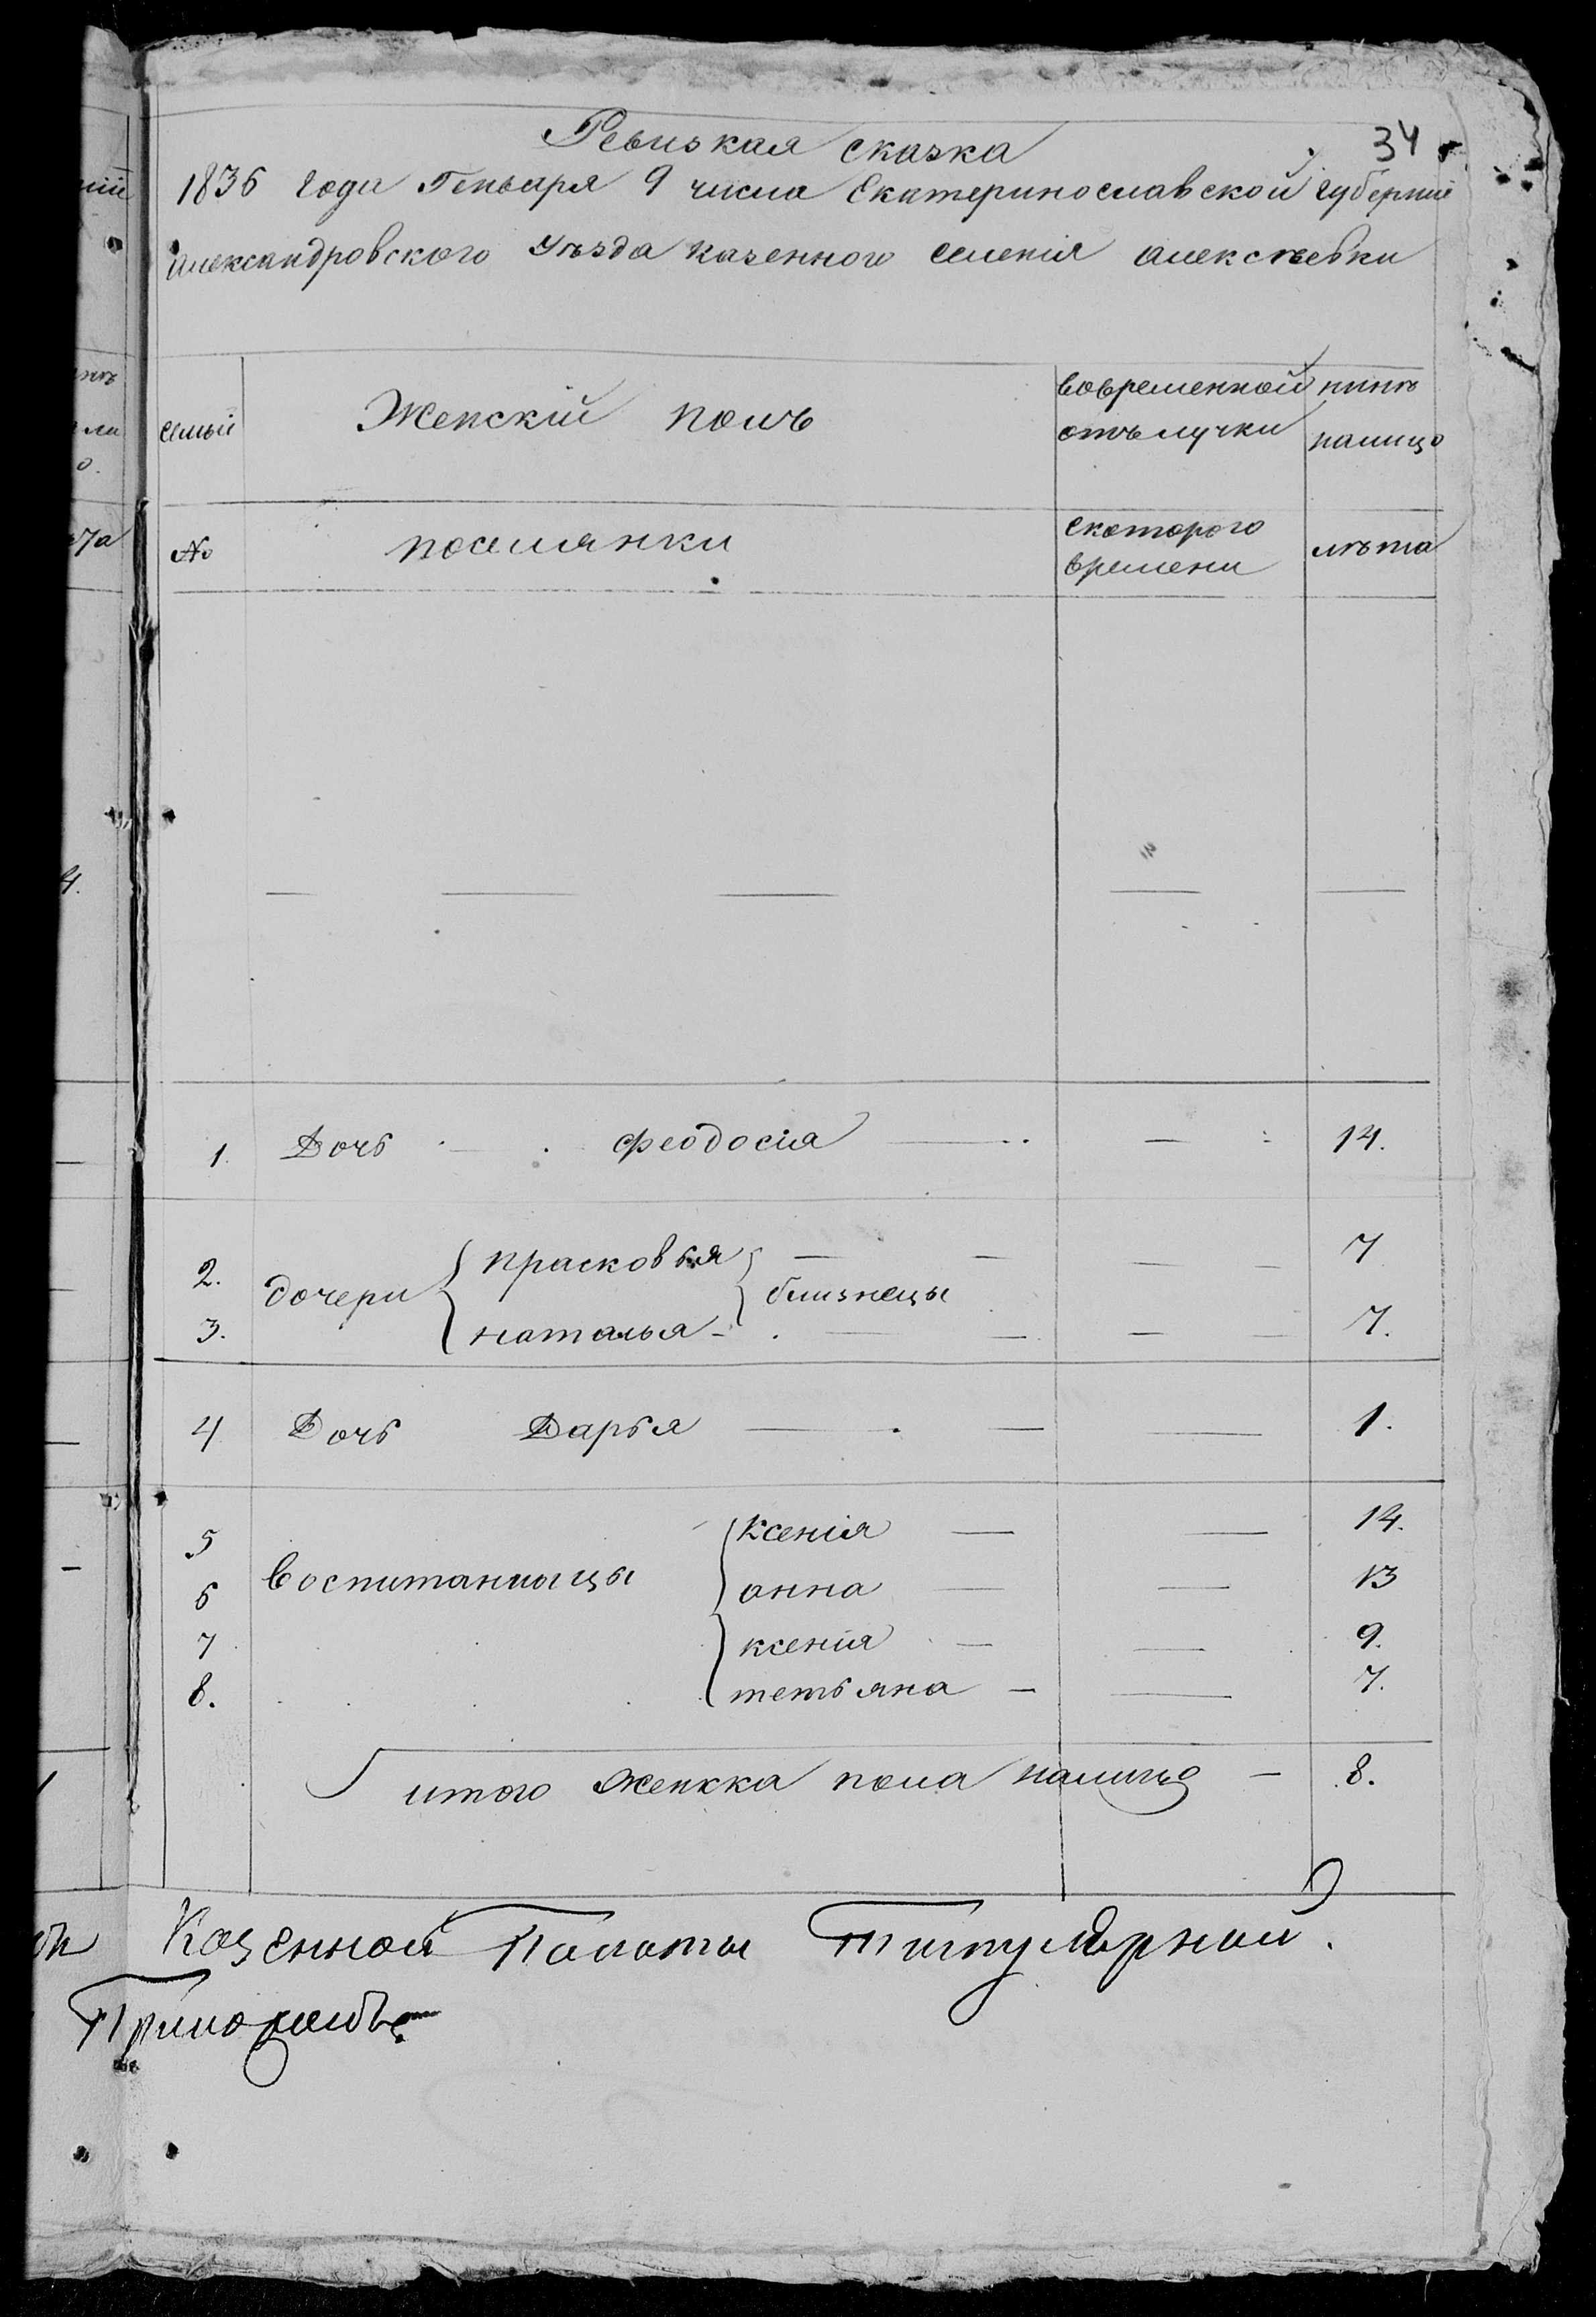 34
Ревизкая сказка
1836 года Генваря 9 числа Екатеринославской губернии
александровского уѣзда казенного селенія алексѣевки
семьи
Женскій полъ
вовременной
отълучки
нынѣ
налицо
№
поселянки
скоторого
времени
лѣта
1. Дочь феодосія — — 14.
2. прасковья — — — 7
дочери близнецы
3. наталья — — — 7.
4 Дочь Дарья — — — 1.
5 ксенія — — 14.
воспитанницы
6 анна — — 13
7 ксенія — — 9.
8. тетьяна — — 7.
итого женкка пола налицо — 8.
Казенной Палаты Титулярной